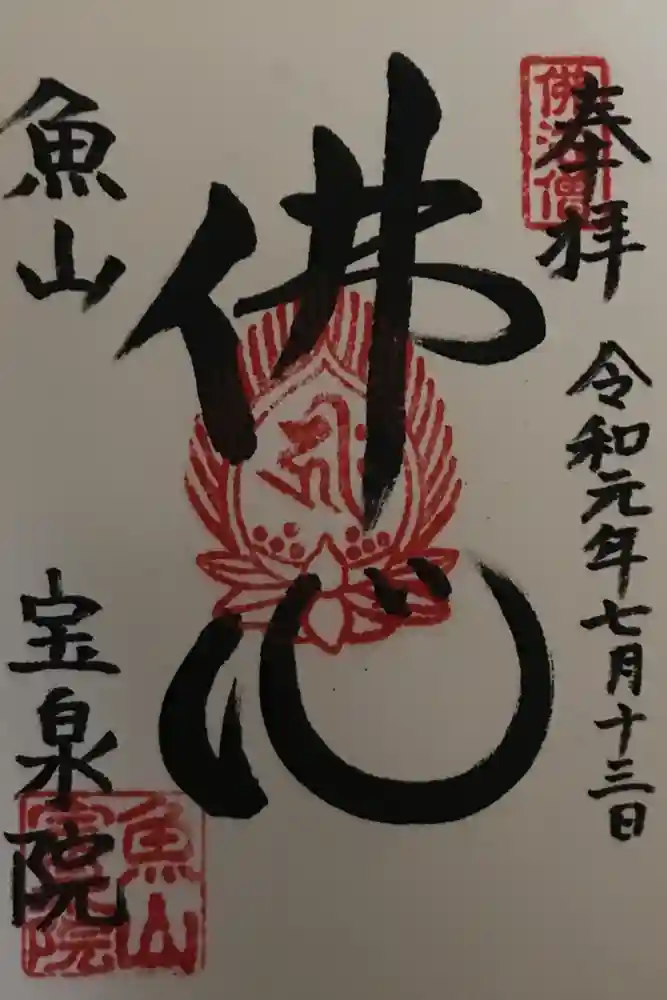 奉拝
令和元年七月十三日
佛法僧
佛心
魚山
宝泉院
魚山
宝泉院